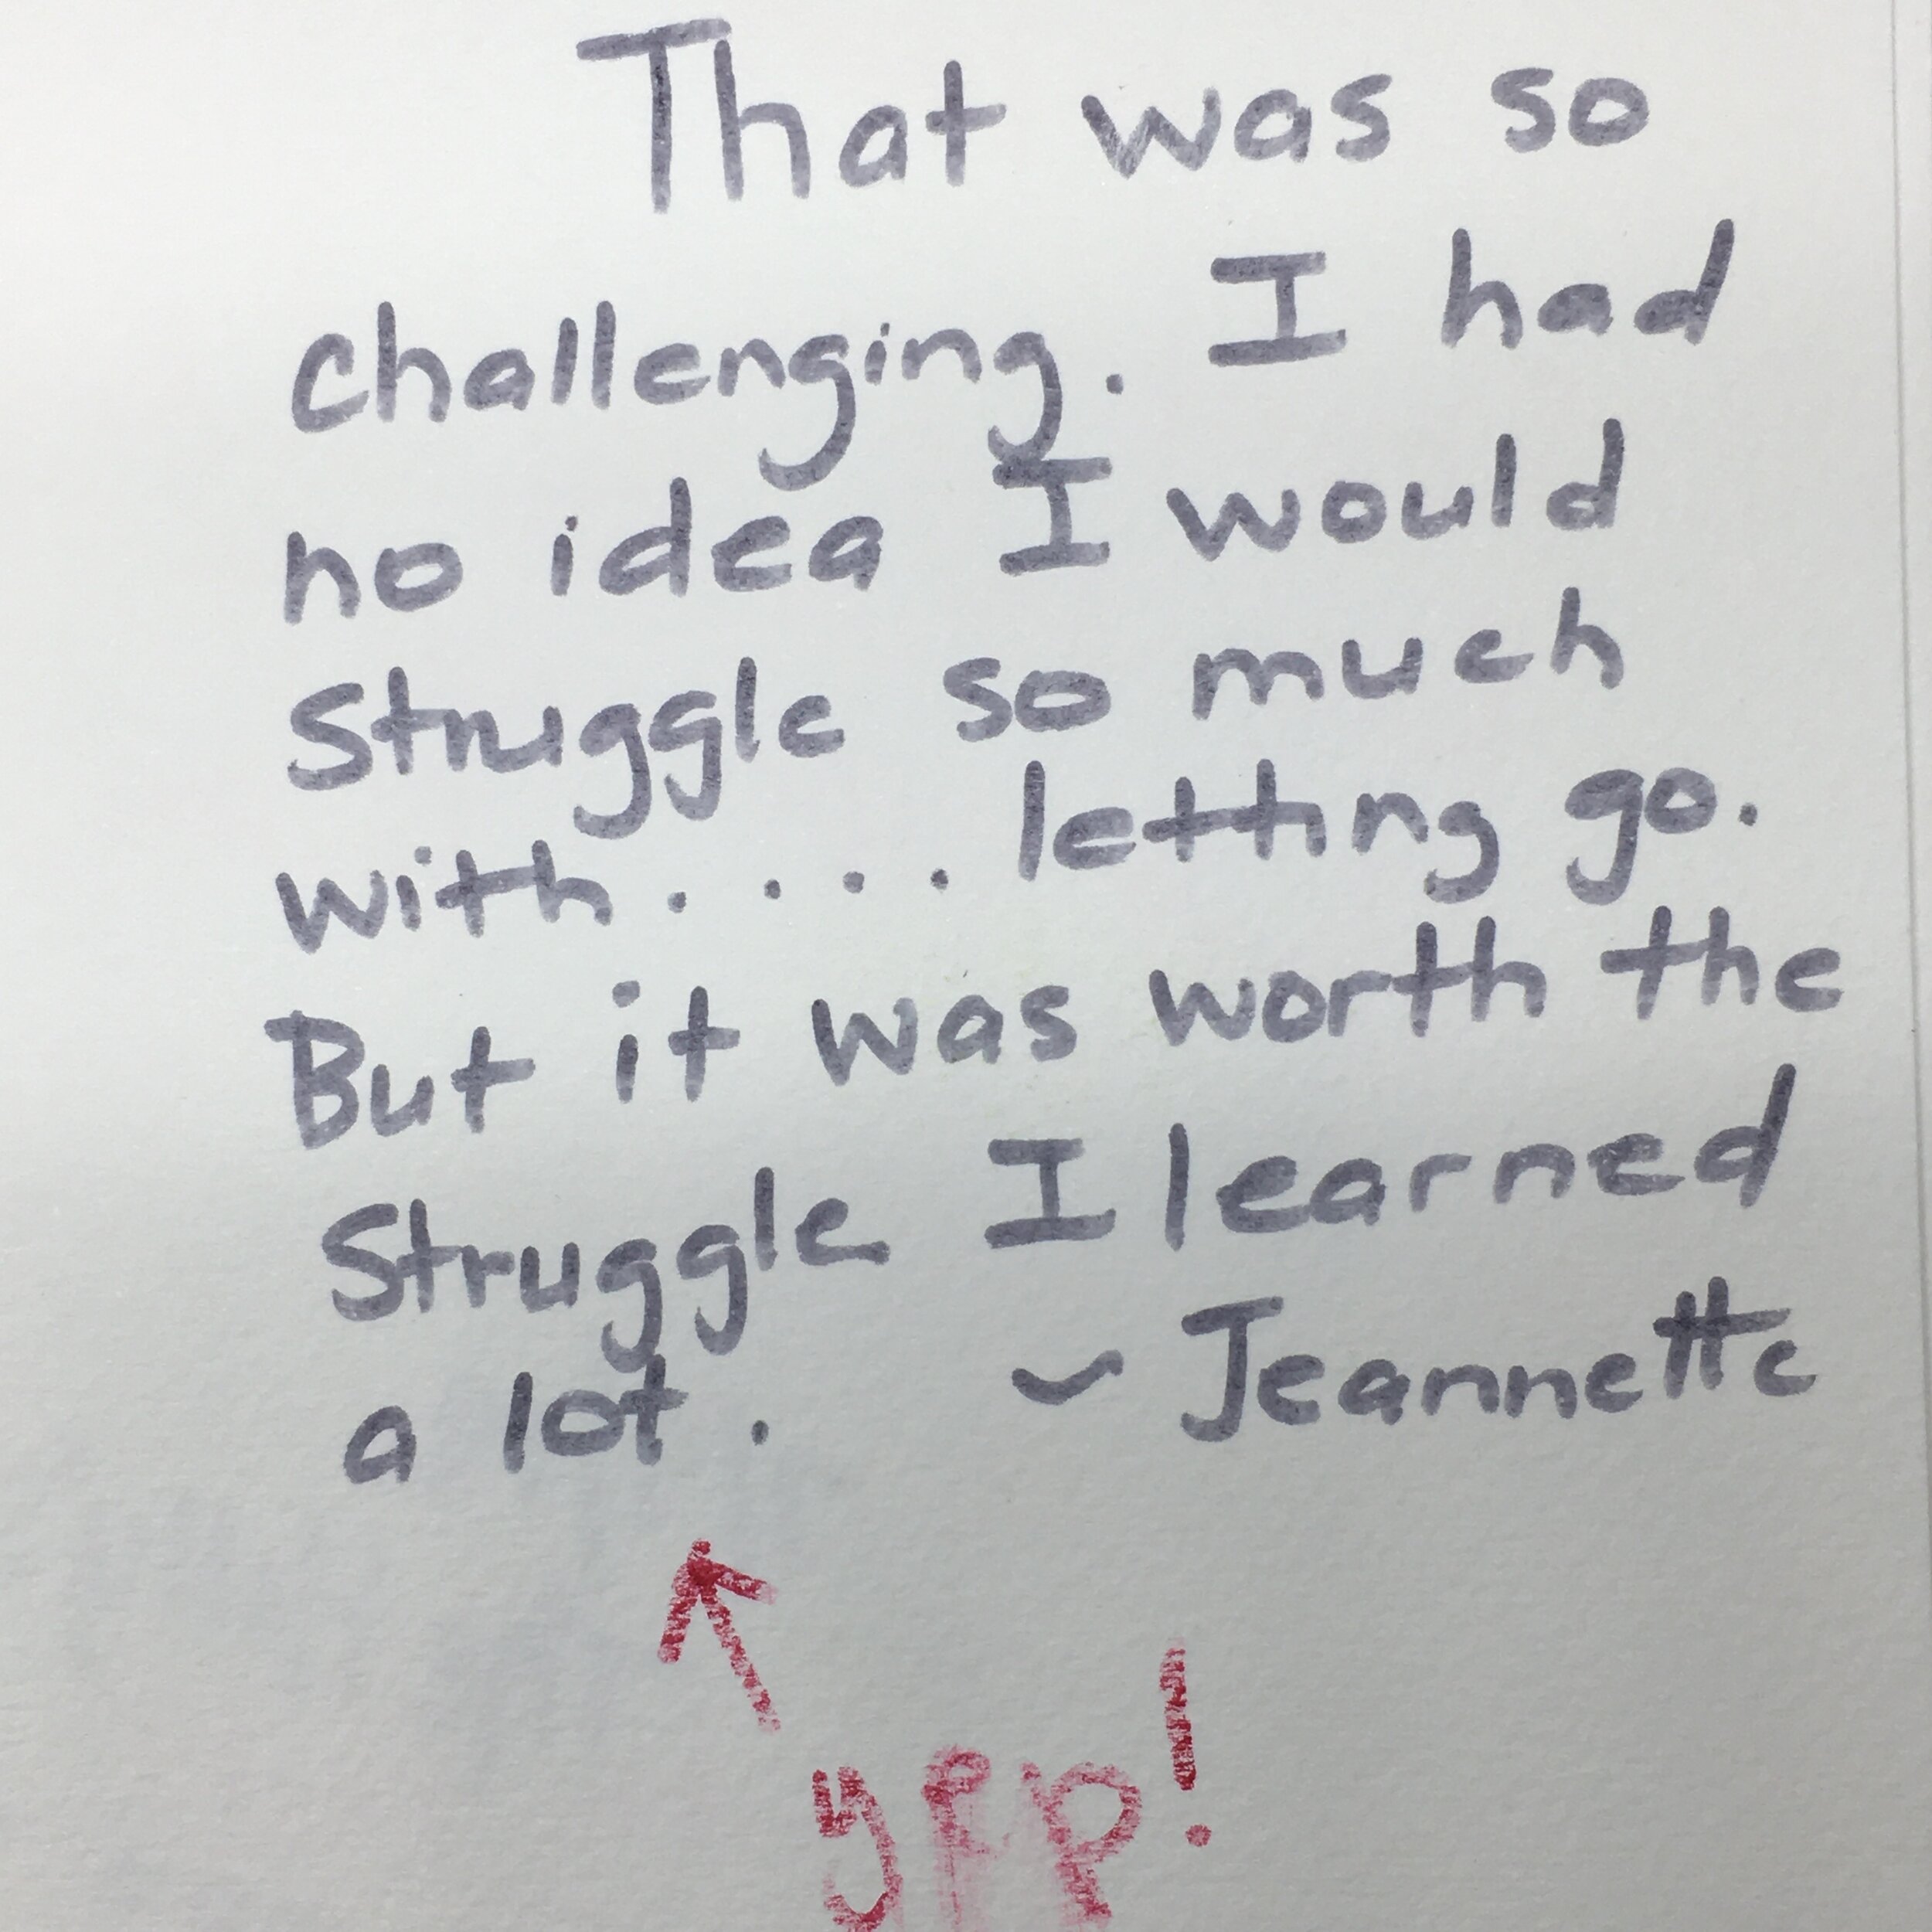 That was so
challenging. I had
no idea I would
struggle so much
with.... letting go.
But it was worth the
struggle I learned
a lot. ~ Jeannette
yep!